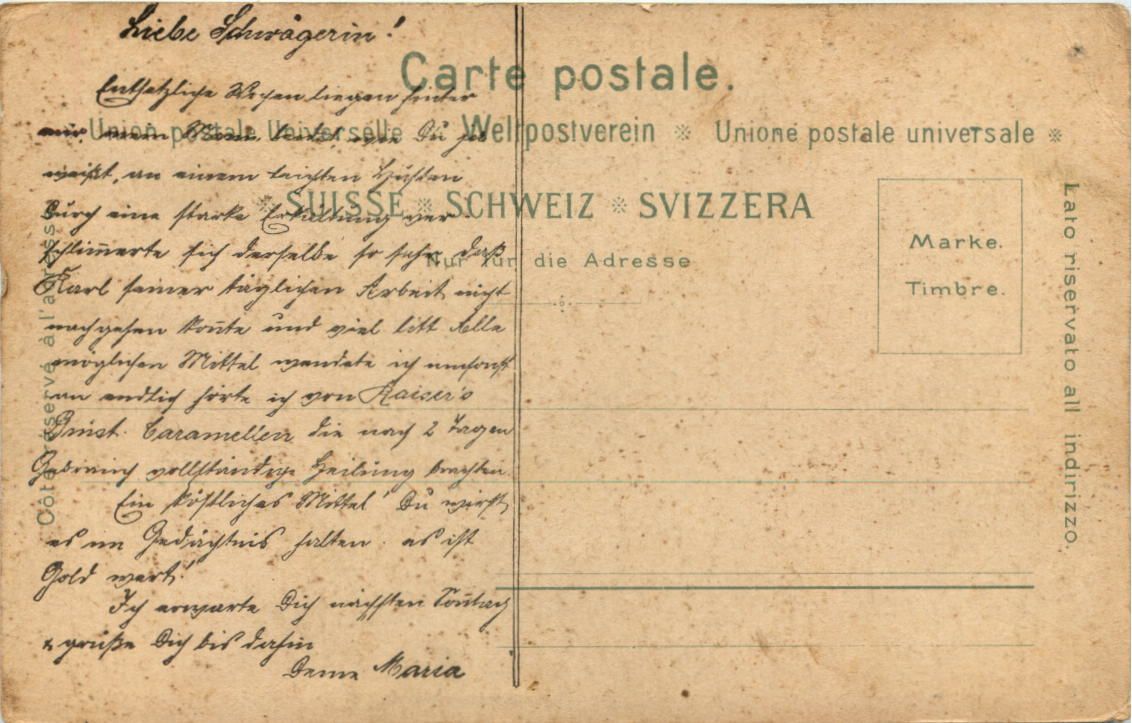 Liebe Schwägerin!
Entsetzliche Wochen liegen hinter
mir, mein Mann leidet, wie Du ja
weißt, an einem leichten Husten
Durch eine starke Erkältung ver
schlim̅erte sich derselbe so sehr daß
Karl seiner täglichen Arbeit nicht
nachgehen kon̅te und viel litt Alle
möglichen Mittel wendete ich umsonst
an endlich hörte ich von Kaiser's
Brust. Caramellen die nach 2 Tagen
Gebrauch vollständige Heilung brachten.
Ein köstliches Mittel! Du wirst
es im Gedächtnis halten. es ist
Gold wert!
Ich erwarte Dich nächsten Son̅tag
& grüße Dich bis dahin
Deine Maria
Carte postale.
Union postale universelle ※ Weltpostverein ※ Unione postale universale ※
※ SUISSE ※ SCHWEIZ ※ SVIZZERA
Nur für die Adresse
Marke.
Timbre.
Côté réservé à l'adresse
Lato riservato all indirizzo.